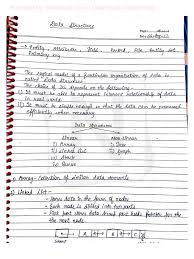 Data Structure
→ Entity, Attribute, Data, Record, File, Entity set
Primary key
The logical model of a particular organization of data is
called "Data Structure".
The choice of DS depends on the following:
I) It must be able to represent inherent relationship of data
in real world.
II) It must be simple enough in that the data can be processed
efficiently when necessary
Data structures
Linear
Non-linear
1) Array
1) Tree
2) Linked list
2) Graph
3) Stack
4) Queue
① Array - Collection of similar data elements
② Linked List -
- Stores data in the form of nodes
- Each node is divided into two parts
- First part stores data and part holds pointer for the
next node
A
B
C
Start